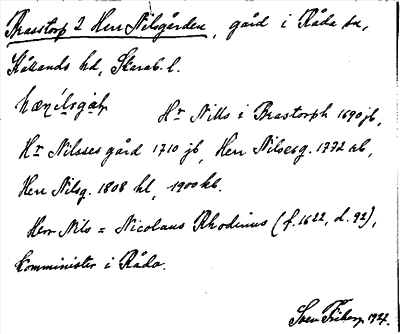 Brastorp 2 Herr Nilsgården, gård i Råda sn,
Kållands hd, Skarab. l.
Hr Nills i Brastorph 1690 jb,
Hr Nilsses gård 1710 jb, Herr Nilsesg. 1772 ab,
Herr Nilsg. 1808 hl, 1900 kb.
Herr Nils = Nicolaus Rhodinus (f. 1622, d. 92),
komminister i Råda.
Sven Friberg 1927.